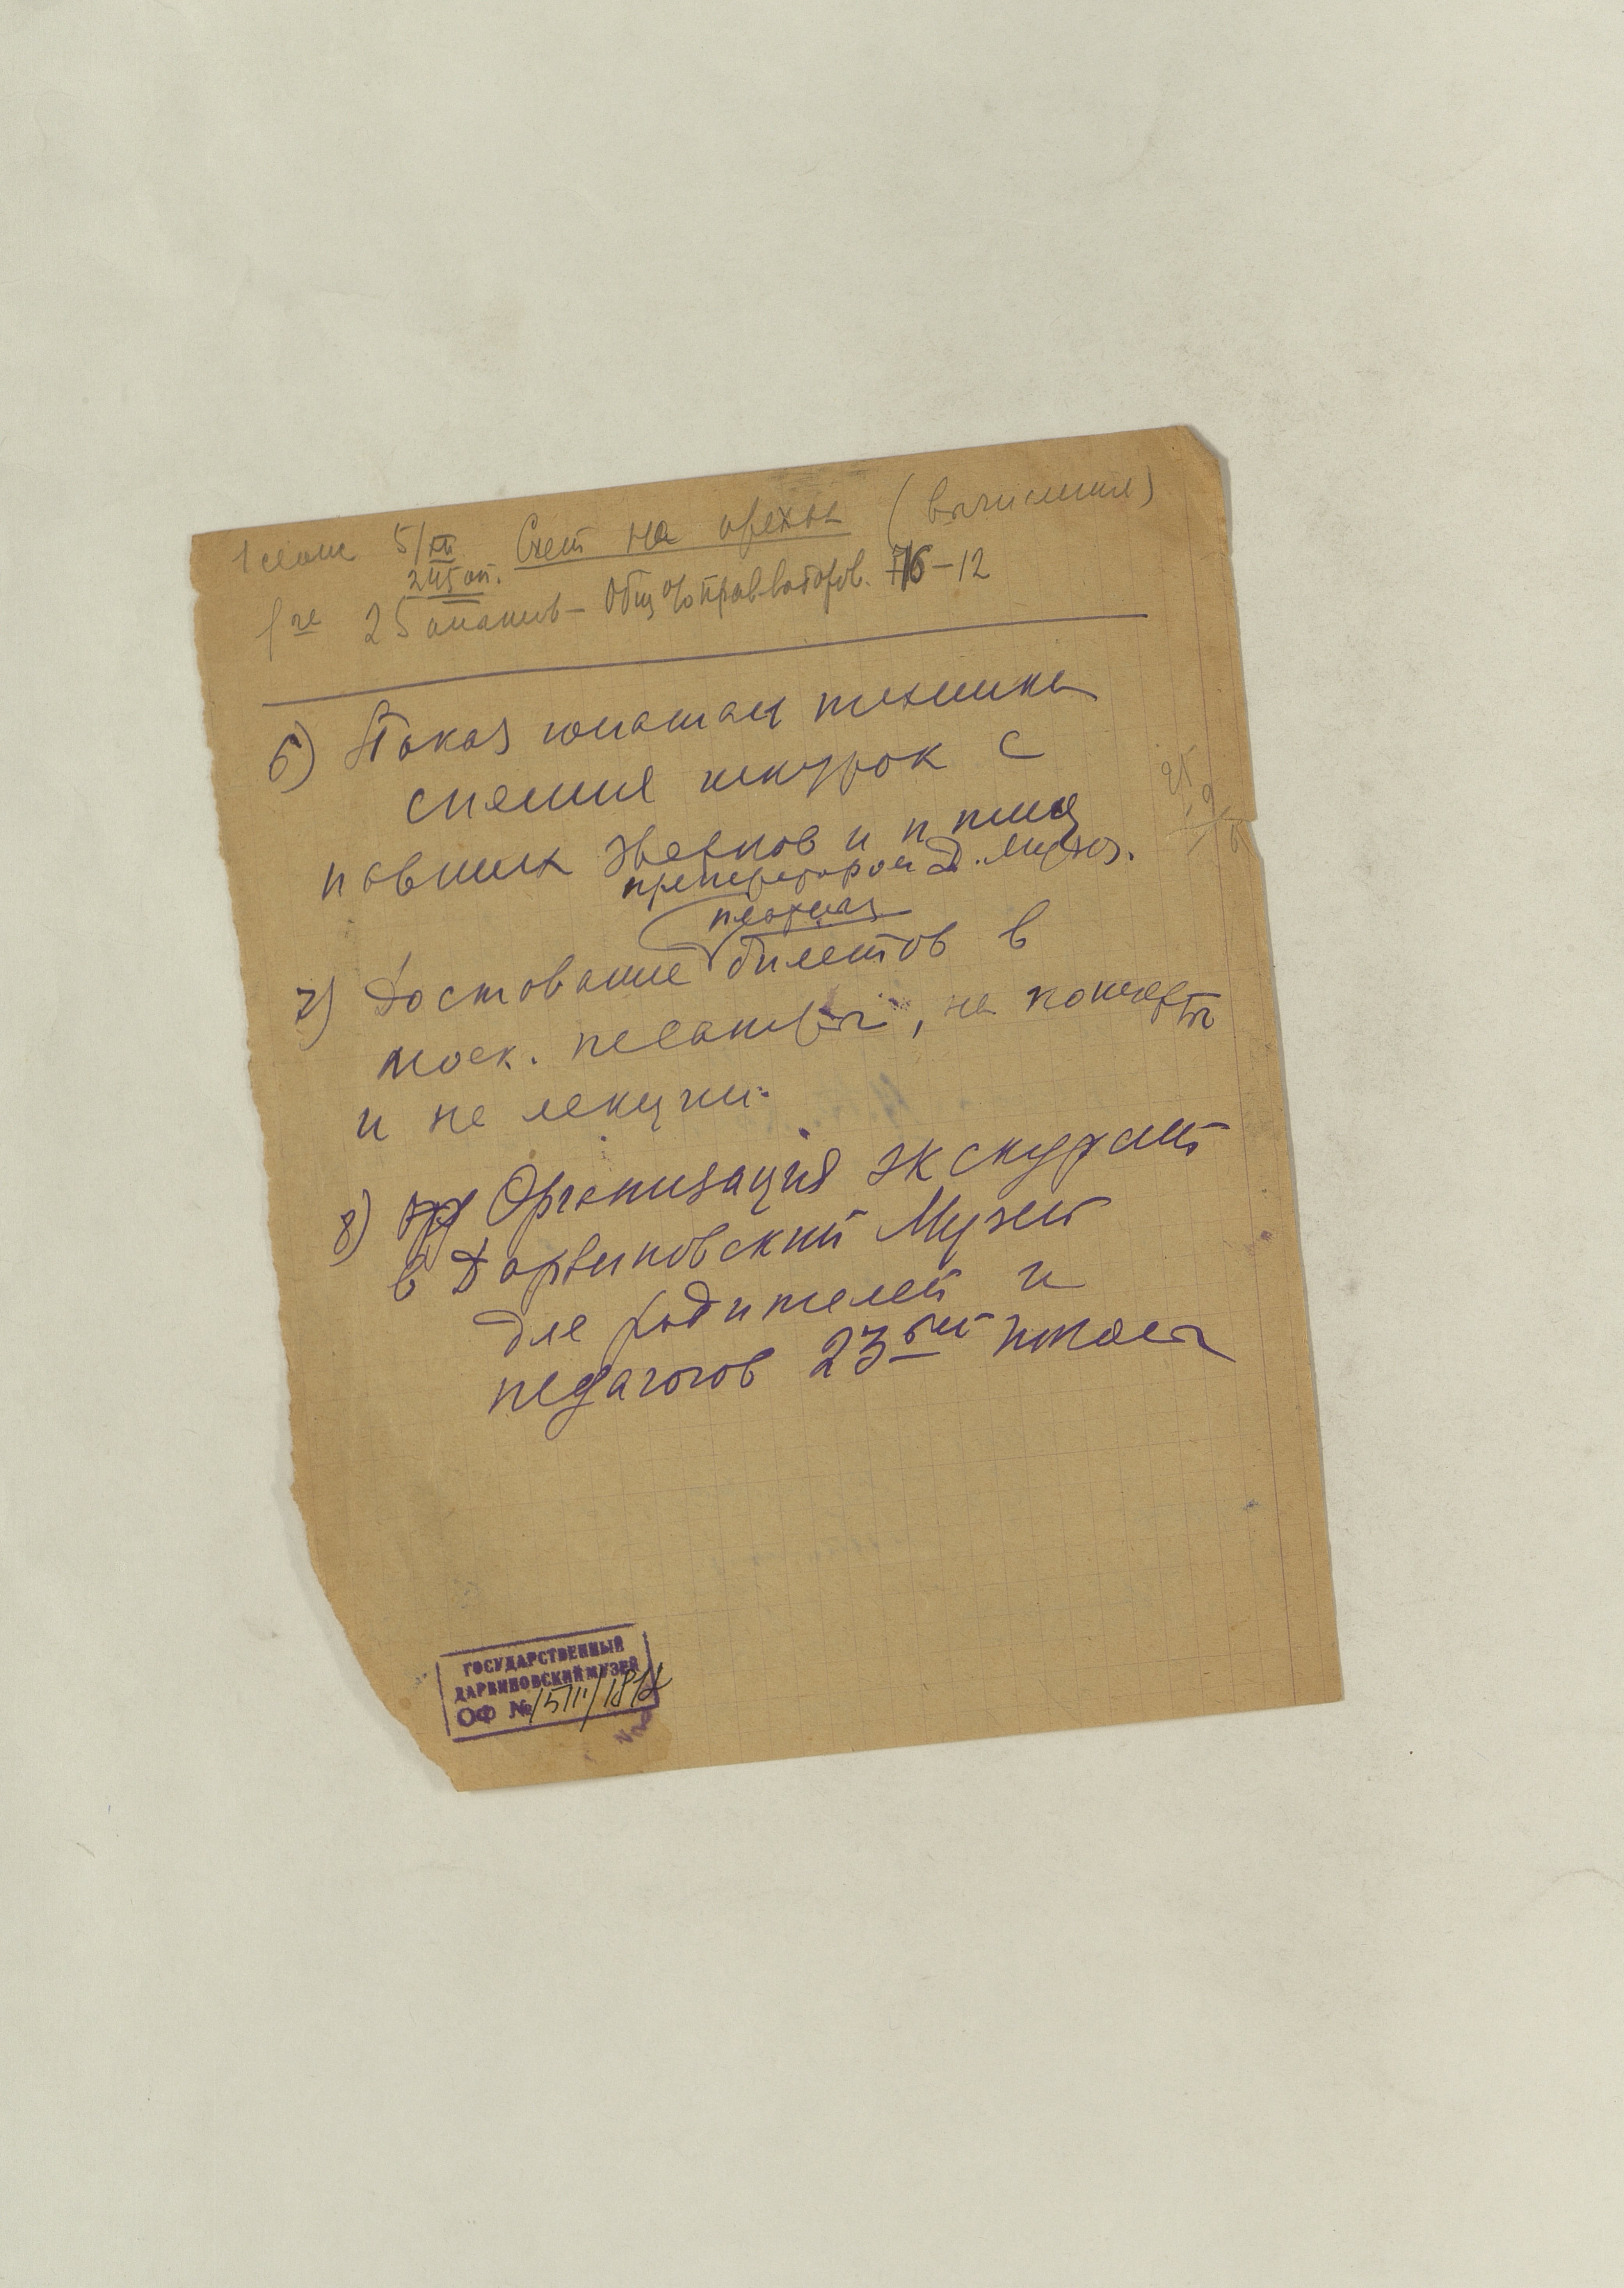 1 сеанс 5/XII Счет на орехи (вычисления)
245 оп.
1/че 25 опытов – Общ % прав. повторов. 76–12
6) Показ юннатам техники
снимания шкурок с
павших зверков и птиц
препаратором Д. Музея.
7) Доставание билетов в
моск. театры, на концерты
и на лекции.
8) Организация экскурсий
в Дарвиновский Музей
для родителей и
педагогов 23ей школы
ГОСУДАРСТВЕННЫЙ
ДАРВИНОВСКИЙ МУЗЕЙ
ОФ №